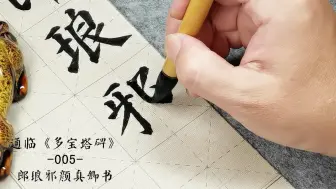 琅
邪
通临《多宝塔碑》
-005-
郎琅邪颜真卿书